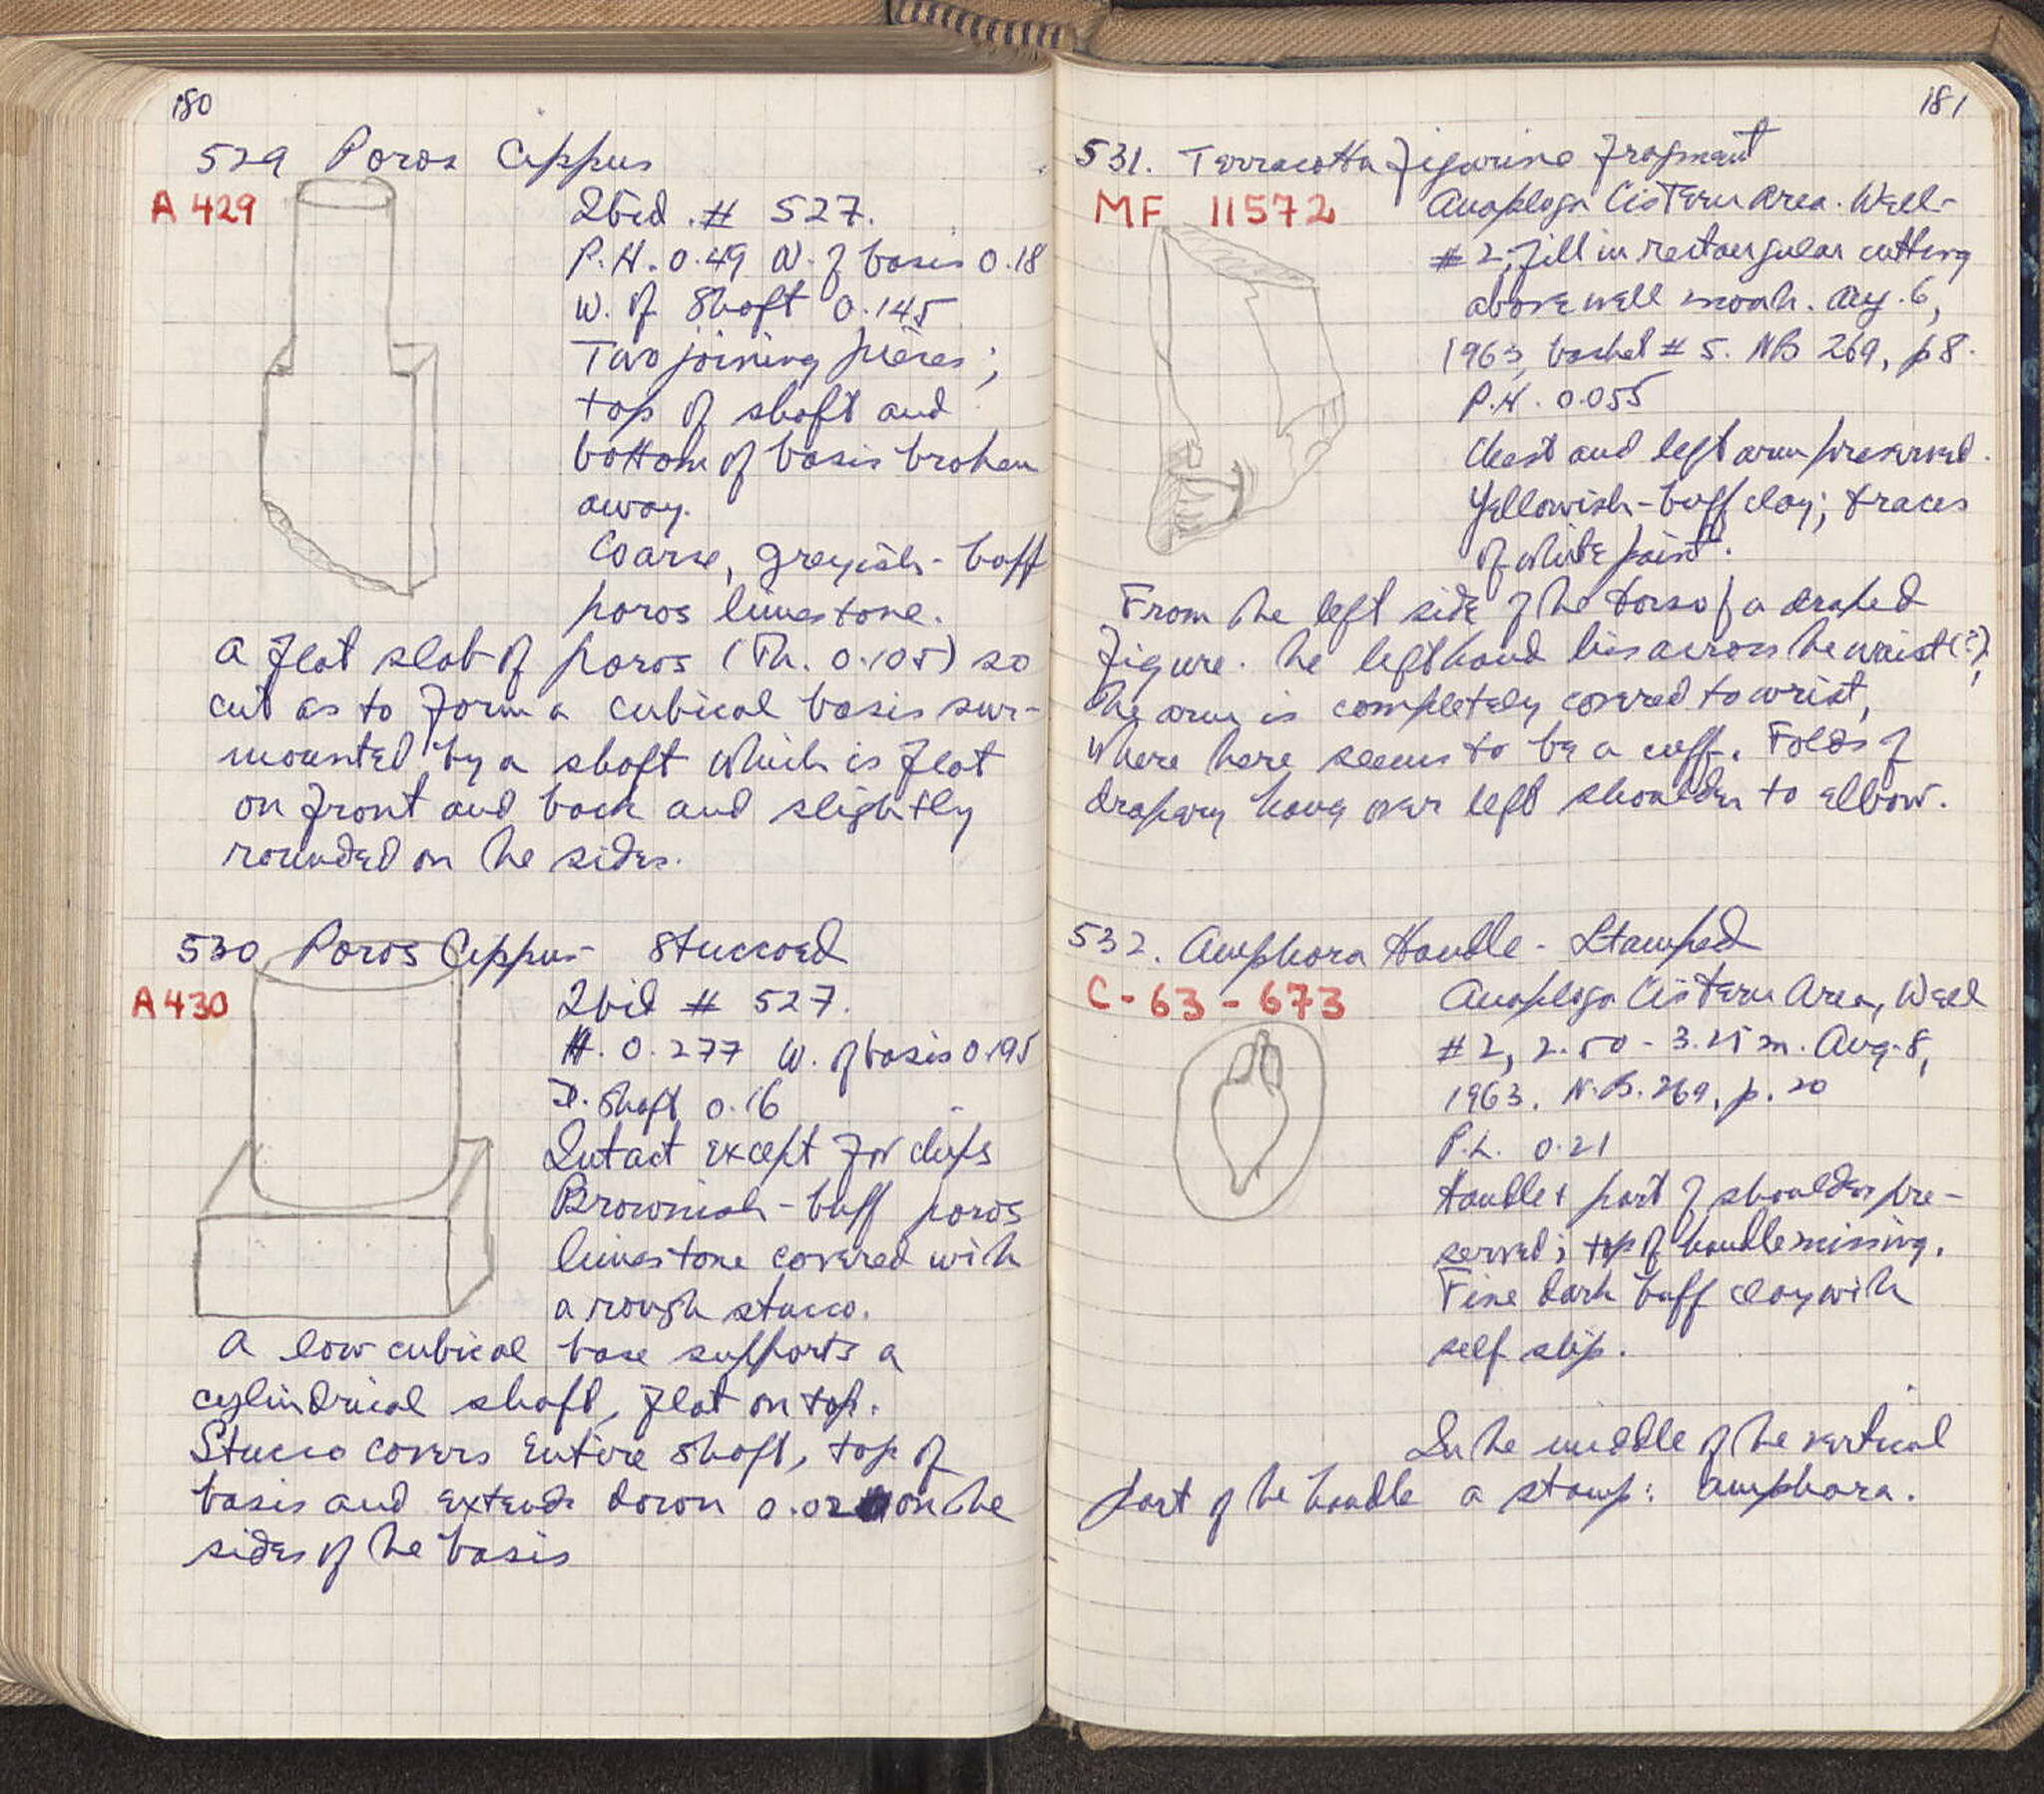 180
529 Poros Cippus
A 429
Ibid. # 527.
P.H. 0.49 W. of basis 0.18
W. of Shaft 0.145
Two joining pieces;
top of shaft and
bottom of basis broken
away.
Coarse, greyish-buff
poros limestone.
A flat slab of poros (Th. 0.105) so
cut as to form a cubical basis sur-
mounted by a shaft which is flat
on front and back and slightly
rounded on the sides.
530 Poros Cippus - Stuccoed
A 430
Ibid # 527.
H. 0.277 W. of basis 0.195
D. Shaft 0.16
Intact except for chips
Brownish-buff poros
limestone covered with
a rough stucco.
A low cubical base supports a
cylindrical shaft, flat on top.
Stucco covers entire shaft, top of
basis and extends down 0.02 on the
sides of the basis
181
531. Terracotta Figurine Fragment
MF 11572
Anaploga Cistern Area. Well-
#2, fill in rectangular cutting
above well mouth. Aug. 6,
1963, basket # 5. NB 269, p 8.
P.H. 0.055
Chest and left arm preserved.
Yellowish-buff clay; traces
of white paint.
From the left side of the torso of a draped
figure. The left hand lies across the waist(?),
the arm is completely covered to wrist,
where there seems to be a cuff. Folds of
drapery hang over left shoulder to elbow.
532. Amphora Handle - Stamped
C-63-673
Anaploga Cistern Area, Well
#2, 2.50 - 3.25 m. Aug. 8,
1963. N.B. 269, p. 20
P.L. 0.21
Handle + part of shoulder pre-
served; top of handle missing.
Fine dark buff clay with
self slip.
In the middle of the vertical
part of the handle a stamp: amphora.